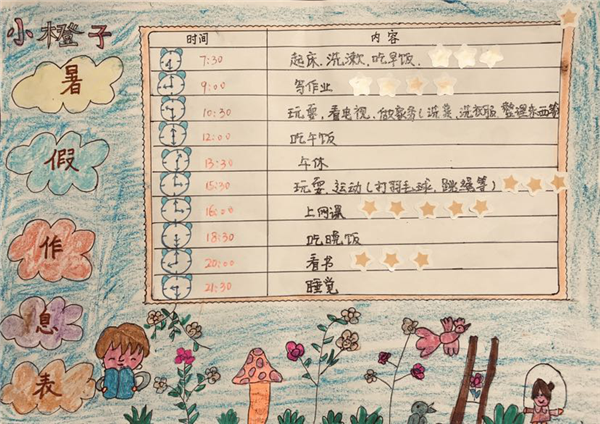 小橙子
暑假作息表
时间 内容
7:30 起床、洗漱、吃早饭、
9:00 写作业
10:30 玩耍、看电视、做家务(洗菜、洗衣服、整理东西等
12:00 吃午饭
13:30 午休
15:30 玩耍、运动(打羽毛球、跳绳等)
16:00 上网课
18:30 吃晚饭
20:00 看书
21:30 睡觉